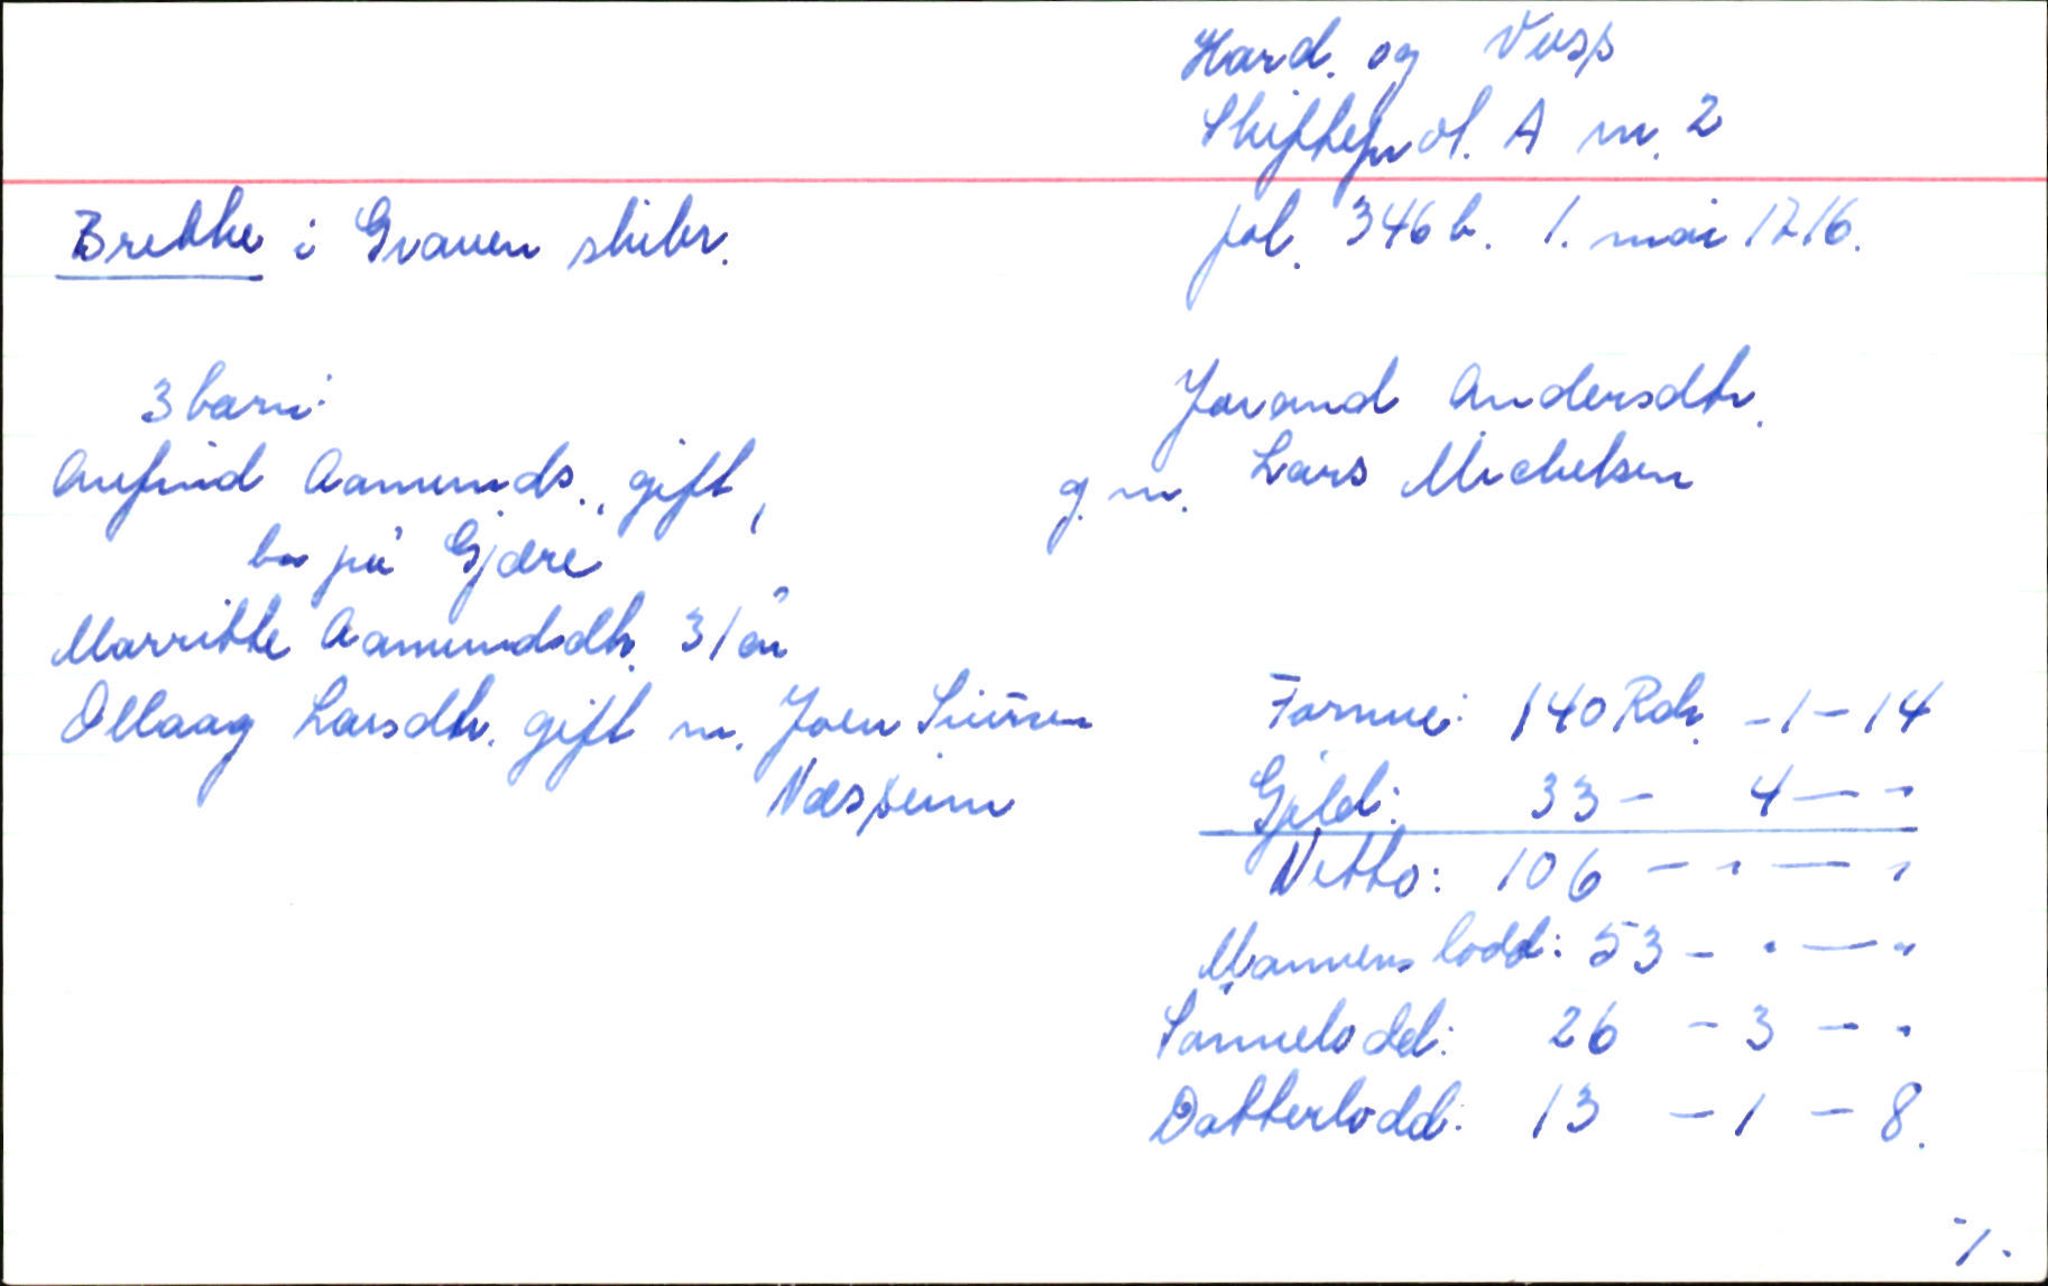 Hard. og Voss
Skifteprot. A nr. 2
fol. 346 b. 1. mai 1716.
Brekke i Graven skibr.
Jorand Andersdtr.
g. m. Lars Michelsen
3 barn:
Anfind Aamunds., gift,
bor på Gjære
Marritte Aamundsdtr. 31 år
Ollaag Larsdtr. gift m. Joen Siursen
Næsheim
Formue: 140 Rdr. - 1 - 14
Gjeld: 33 - 4 - "
Netto: 106 - " - "
Mannens lodd: 53 - " - "
Sønnelodd: 26 - 3 - "
Datterlodd: 13 - 1 - 8.
-/.